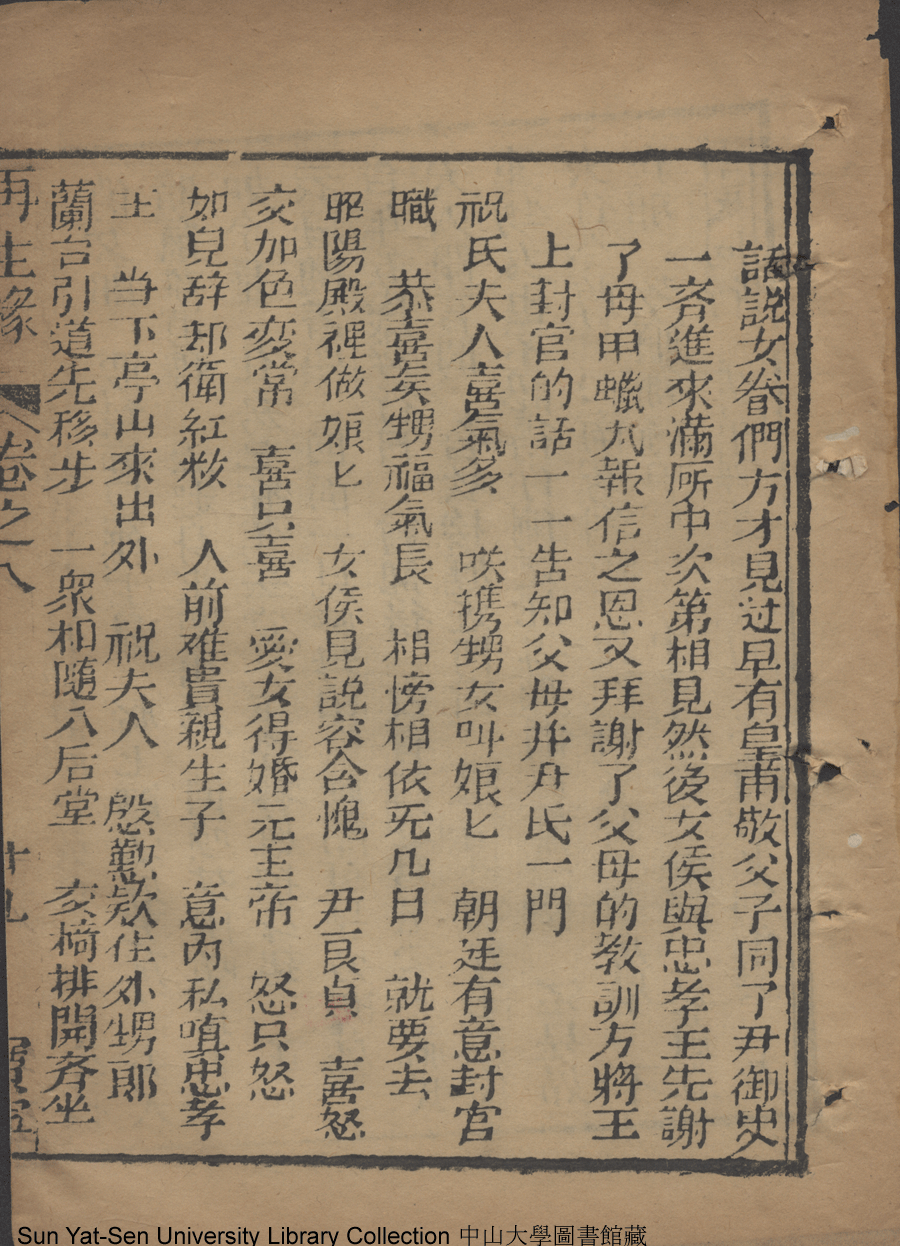 話說女眷們方才見过早有皇甫敬父子同了尹御史
一斉進來滿所中次第相見然後女侯與忠孝王先謝
了母甲蠟丸報信之恩又拜謝了父母的教訓方將王
上封官的話一一告知父母并尹氏一門
祝氏夫人喜氣多　咲携甥女叫娘匕　朝廷有意封宮
職　恭喜矣甥福氣長　相傍相依旡几日　就要去
昭陽殿裡做娘匕　女侯見說容含愧　尹良貞　喜怒
交加色変常　喜只喜　愛女得婚元主帝　怒只怒
如兒辞却衛紅妝　人前难貴親生子　意內私嗔忠孝
王　当下亭山來出外　祝夫人　慇懃欵住外甥郎
蘭台引道先移步　一衆相隨入后堂　交椅排開斉坐
再生緣　卷之八　十九
Sun Yat-Sen University Library Collection 中山大學圖書館藏